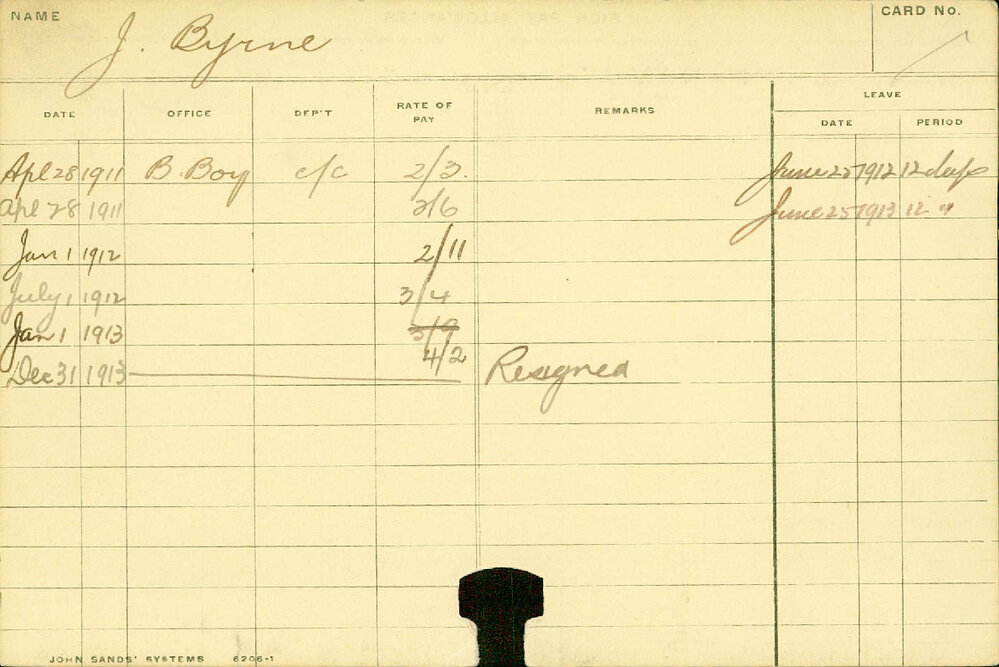 NAME J. Byrne CARD No.
DATE OFFICE DEP'T RATE OF PAY REMARKS LEAVE DATE PERIOD
Apl 28 1911 B. Boy c/c 2/3. June 25 1912 12 days
Apl 28 1911 2/6 June 25 1913 12 "
Jan 1 1912 2/11
July 1 1912 3/4
Jan 1 1913 3/9
4/2
Dec 31 1913 Resigned
JOHN SANDS' SYSTEMS 6206-1